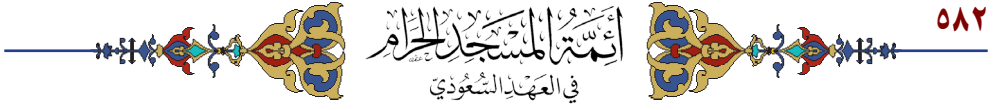 ٥٨٢
أَئِمَّةُ المَسْجِدِ الحَرَامِ
في العَهْدِ السُّعُودِيّ